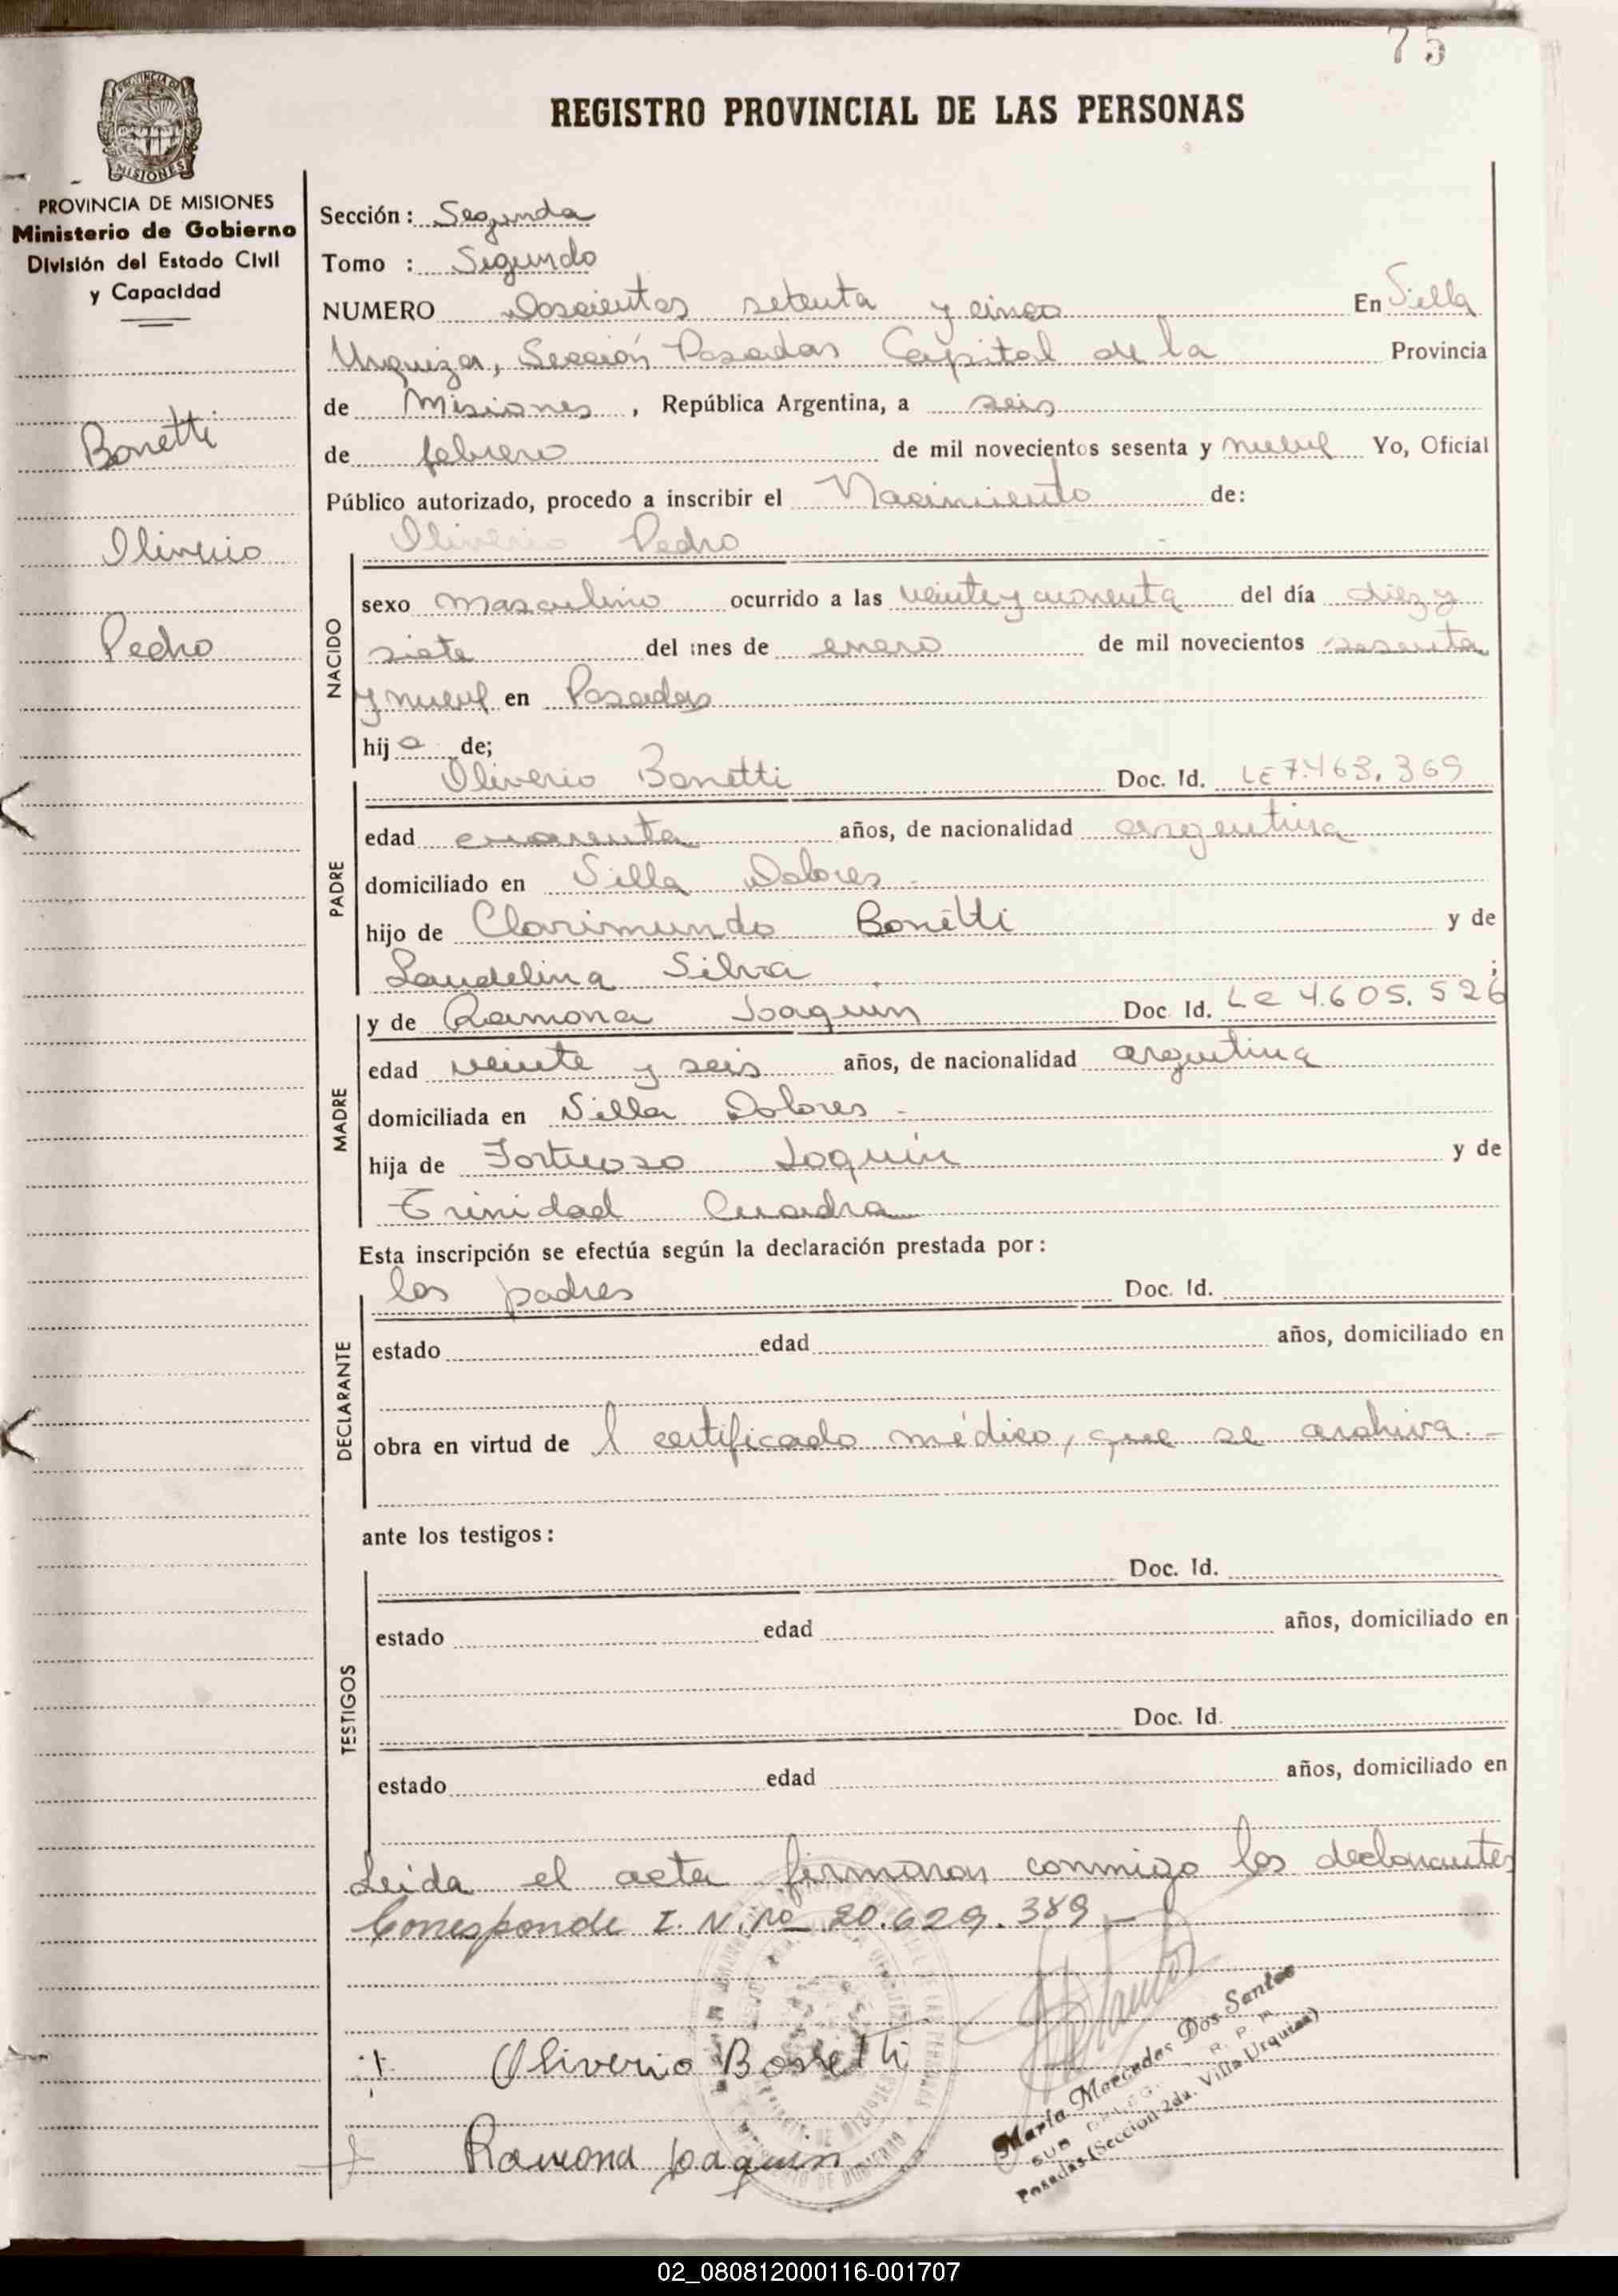 75
PROVINCIA DE
MISIONES
REGISTRO PROVINCIAL DE LAS PERSONAS
PROVINCIA DE MISIONES
Ministerio de Gobierno
División del Estado Civil
y Capacidad
Bonetti
Oliverio
Pedro
Sección: Segunda
Tomo : Segundo
NUMERO Doscientos setenta y cinco En Villa
Urquiza, Sección Posadas Capital de la Provincia
de Misiones, República Argentina, a seis
de febrero de mil novecientos sesenta y nueve Yo, Oficial
Público autorizado, procedo a inscribir el Nacimiento de:
Oliverio Pedro
NACIDO
sexo masculino ocurrido a las veinte y cuarenta del día diez y
siete del mes de enero de mil novecientos sesenta
y nueve en Posadas
hijo de;
PADRE
Oliverio Bonetti Doc. Id. LE 7.463.369
edad cuarenta años, de nacionalidad argentina
domiciliado en Villa Dolores -
hijo de Clarimundo Bonetti y de
Laudelina Silva ;
MADRE
y de Ramona Joaquin Doc Id. Lc 4.605.526
edad veinte y seis años, de nacionalidad argentina
domiciliada en Villa Dolores -
hija de Fortuoso Joquin y de
Trinidad Cuadra
Esta inscripción se efectúa según la declaración prestada por:
DECLARANTE
los padres Doc. Id.
estado edad años, domiciliado en
obra en virtud de l certificado médico, que se archiva. -
ante los testigos:
TESTIGOS
Doc. Id.
estado edad años, domiciliado en
Doc. Id.
estado edad años, domiciliado en
Leida el acta firmaron conmigo los declarantes
Corresponde I. N. no 20.629.389 -
Oliverio Bonetti
Ramona Joaquin
María Mercedes Dos Santos
SUB DELEG. R. P. P.
Posadas (Sección 2da. Villa Urquiza)
02_080812000116-001707